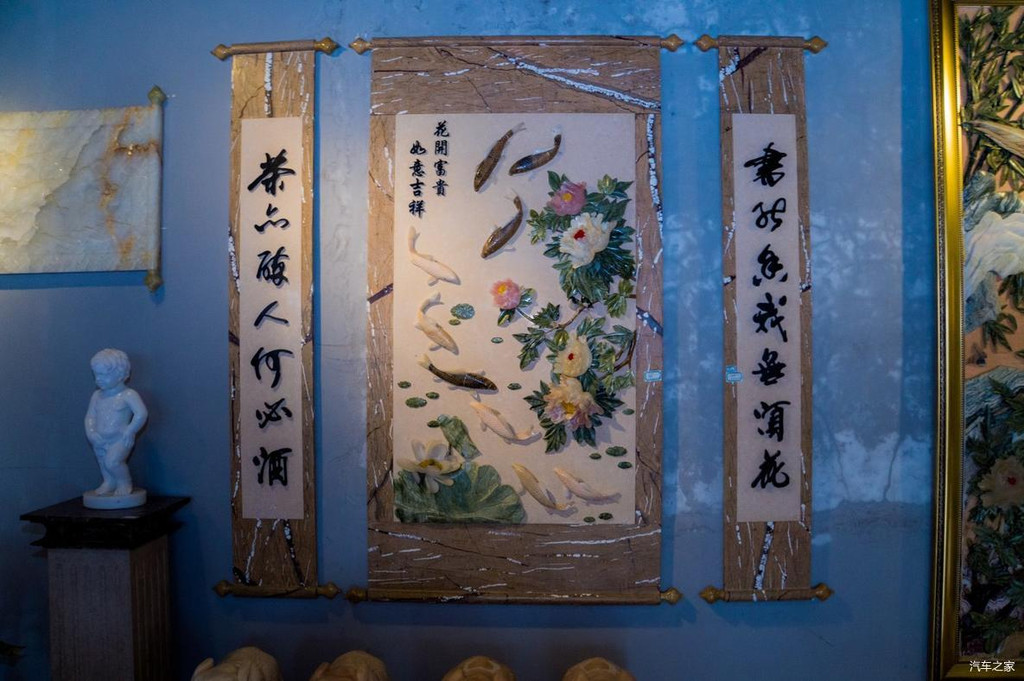 書能香我無須花
花開富貴
如意吉祥
茶亦醉人何必酒
汽车之家